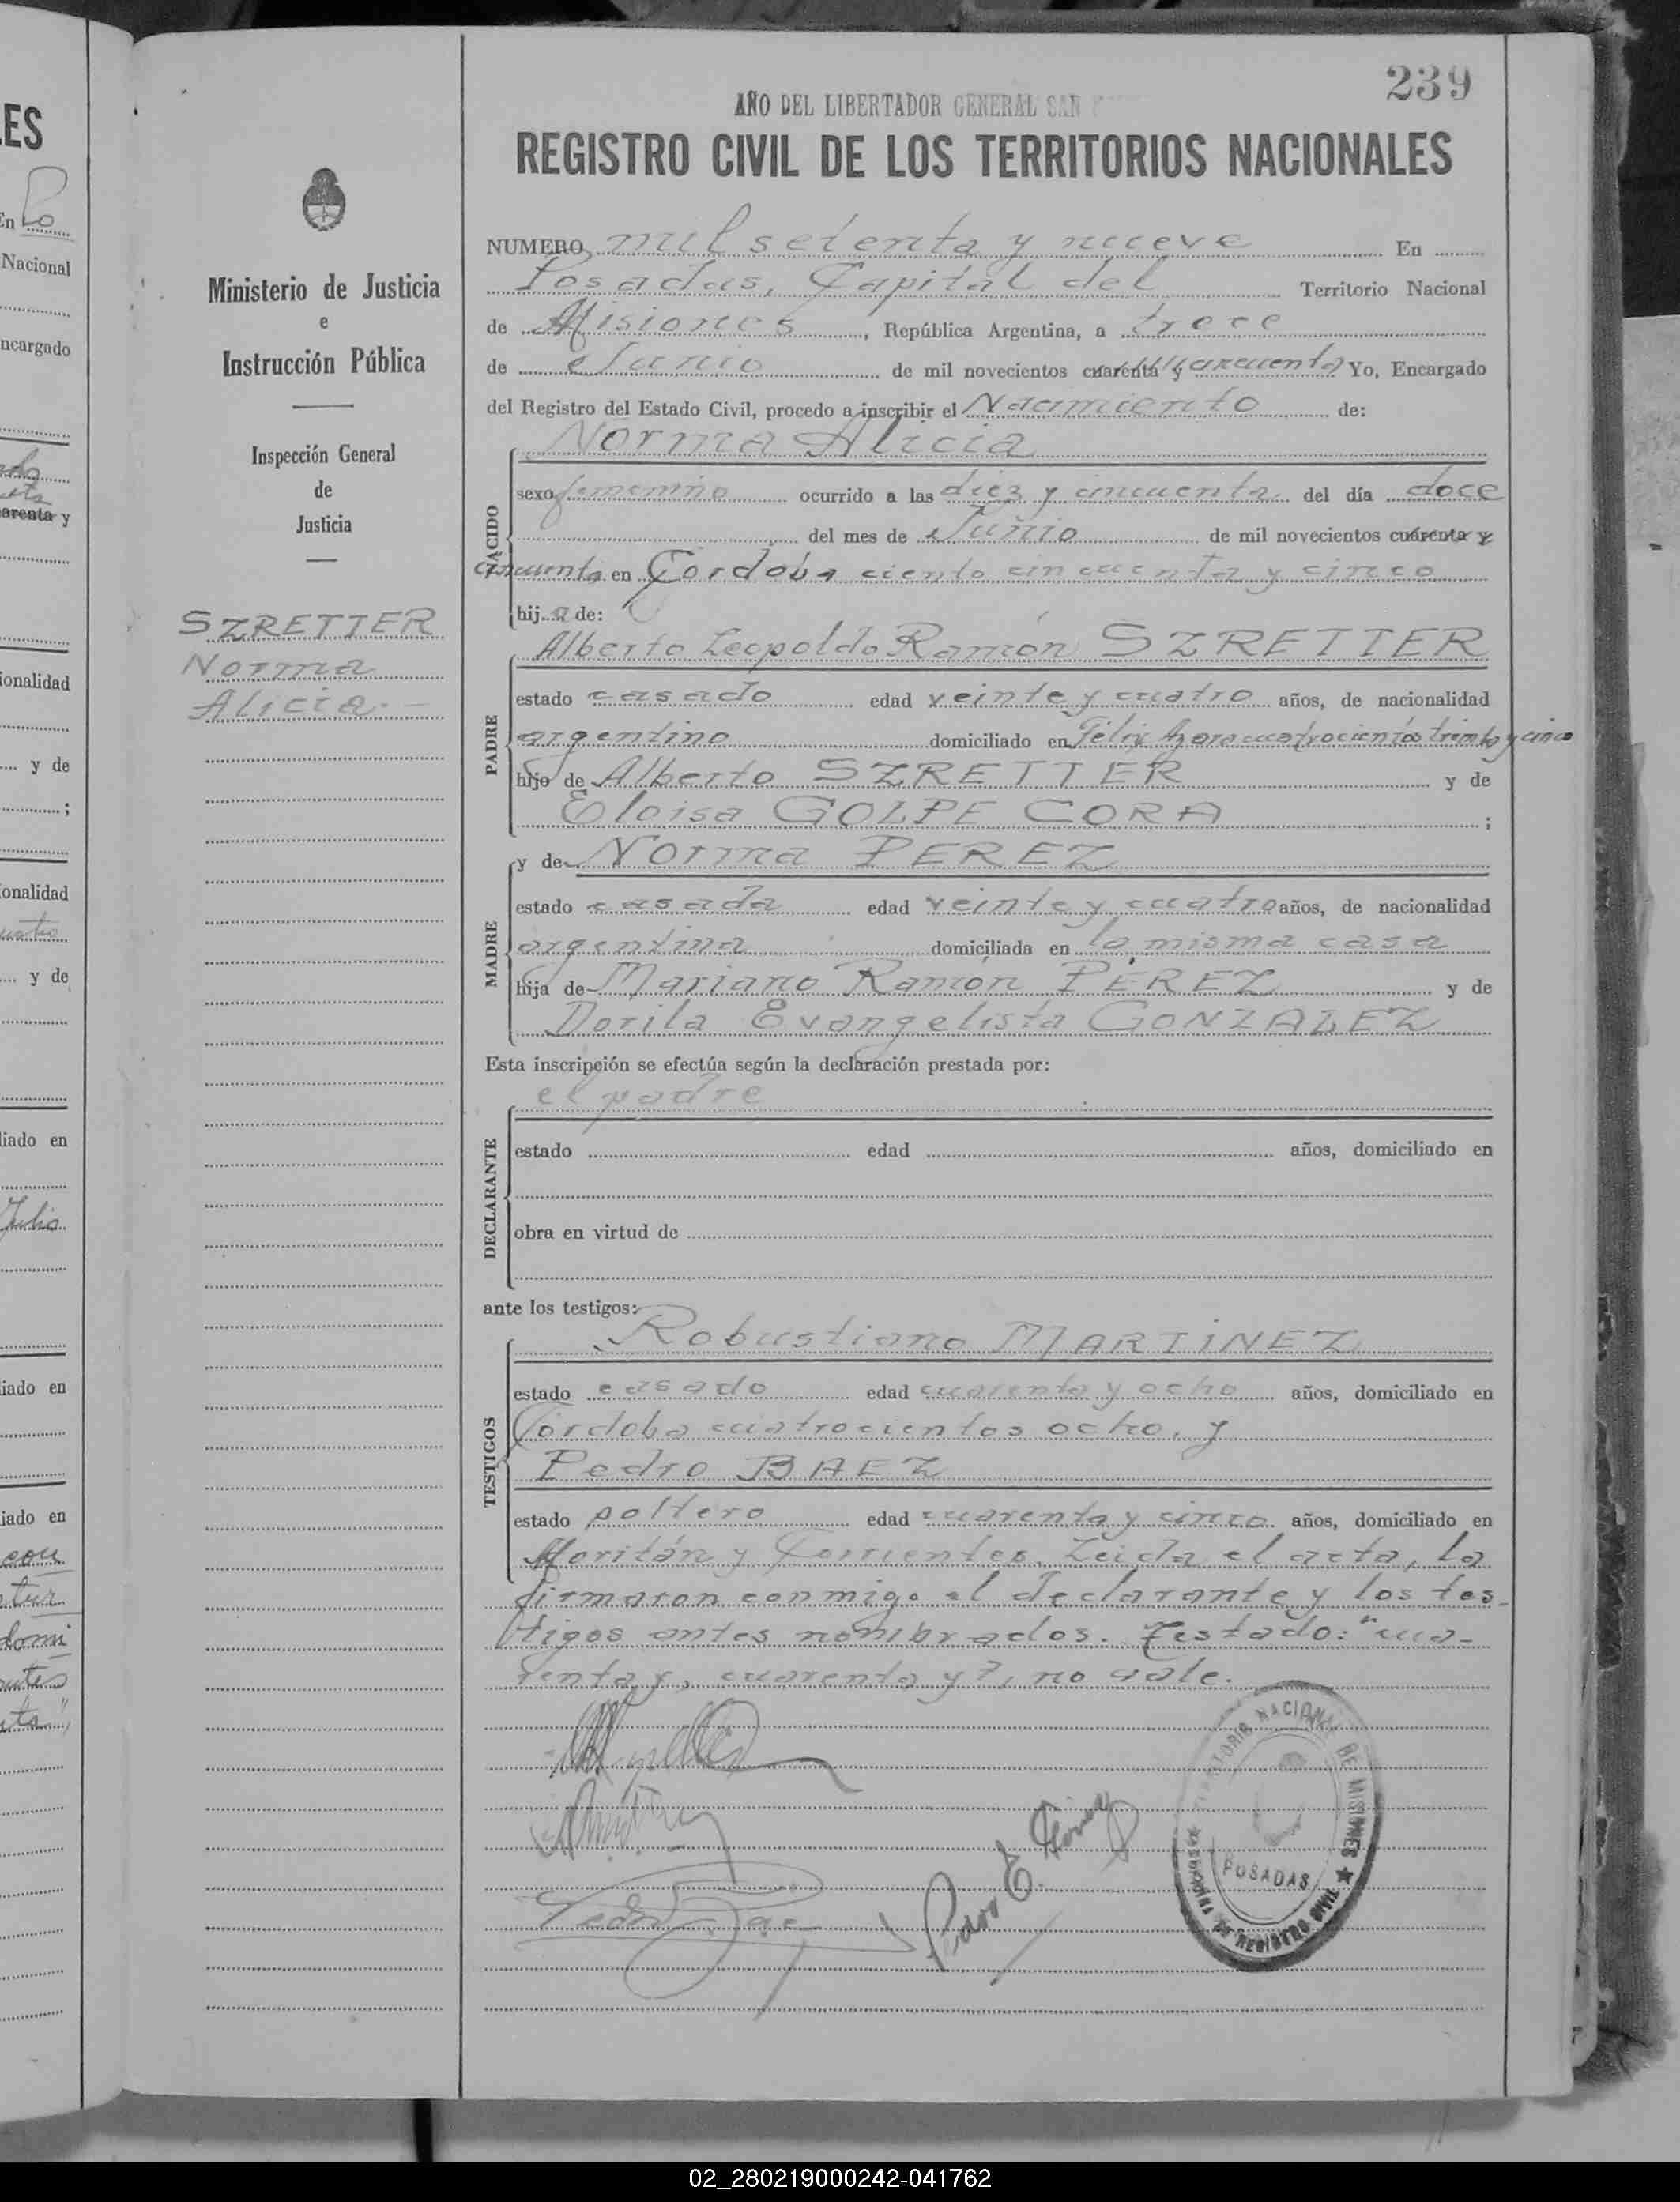 239
AÑO DEL LIBERTADOR GENERAL SAN
REGISTRO CIVIL DE LOS TERRITORIOS NACIONALES
NUMERO mil setenta y nueve En
Posadas, Capital del Territorio Nacional
de Misiones, República Argentina, a trece
de Junio de mil novecientos cuarenta y cincuenta Yo, Encargado
del Registro del Estado Civil, procedo a inscribir el Nacimiento de:
Norma Alicia
NACIDO
sexo femenino ocurrido a las diez y cincuenta del día doce
del mes de Junio de mil novecientos cuarenta y
cincuenta en Córdoba ciento cincuenta y cinco
hija de:
PADRE
Alberto Leopoldo Ramón SZRETTER
estado casado edad veinte y cuatro años, de nacionalidad
argentino domiciliado en Félix Azara cuatrocientos treinta y cinco
hijo de Alberto SZRETTER y de
Eloisa GOLPE CORA ;
MADRE
y de Norma PEREZ
estado casada edad veinte y cuatro años, de nacionalidad
argentina domiciliada en la misma casa
hija de Mariano Ramón PÉREZ y de
Dorila Evangelista GONZALEZ
Esta inscripción se efectúa según la declaración prestada por:
el padre
DECLARANTE
estado edad años, domiciliado en
obra en virtud de
ante los testigos:
TESTIGOS
Robustiano MARTINEZ
estado casado edad cuarenta y ocho años, domiciliado en
Córdoba cuatrocientos ocho, y
Pedro BAEZ
estado soltero edad cuarenta y cinco años, domiciliado en
Moritán y Corrientes. Leida el acta, la
firmaron conmigo el declarante y los tes-
tigos antes nombrados. Testado: "cua-
renta y, cuarenta y", no vale.
Pedro Baez
Pedro E.
TERRITORIO NACIONAL DE MISIONES
POSADAS
DE REGISTRO CIVIL
Ministerio de Justicia
e
Instrucción Pública
Inspección General
de
Justicia
SZRETTER
Norma
Alicia.-
ES
En Po
Nacional
ncargado
arenta y
ionalidad
y de
;
onalidad
y de
liado en
Julio
iado en
iado en
con
tur
domi
02_280219000242-041762